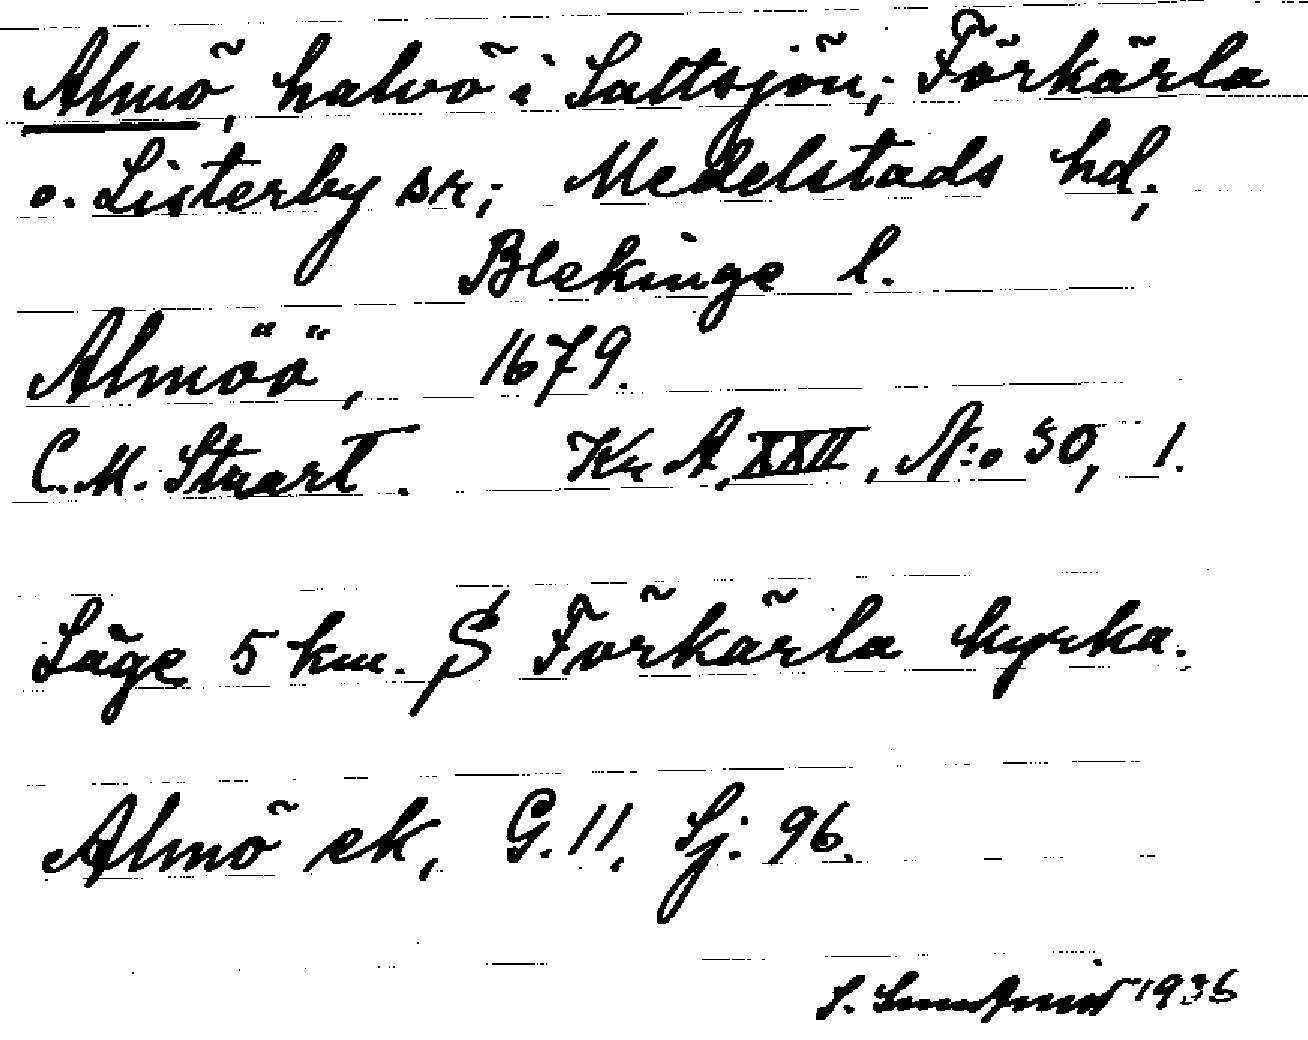 Almö, halvö i Saltsjön; Förkärla
o. Listerby sr; Medelstads hd,
Blekinge l.
Almöö, 1679.
C.M. Stuart. Kr A, XXII, N:o 30, 1.
Läge 5 km. S Förkärla kyrka.
Almö ek, G.11, Sj: 96.
S. 1936